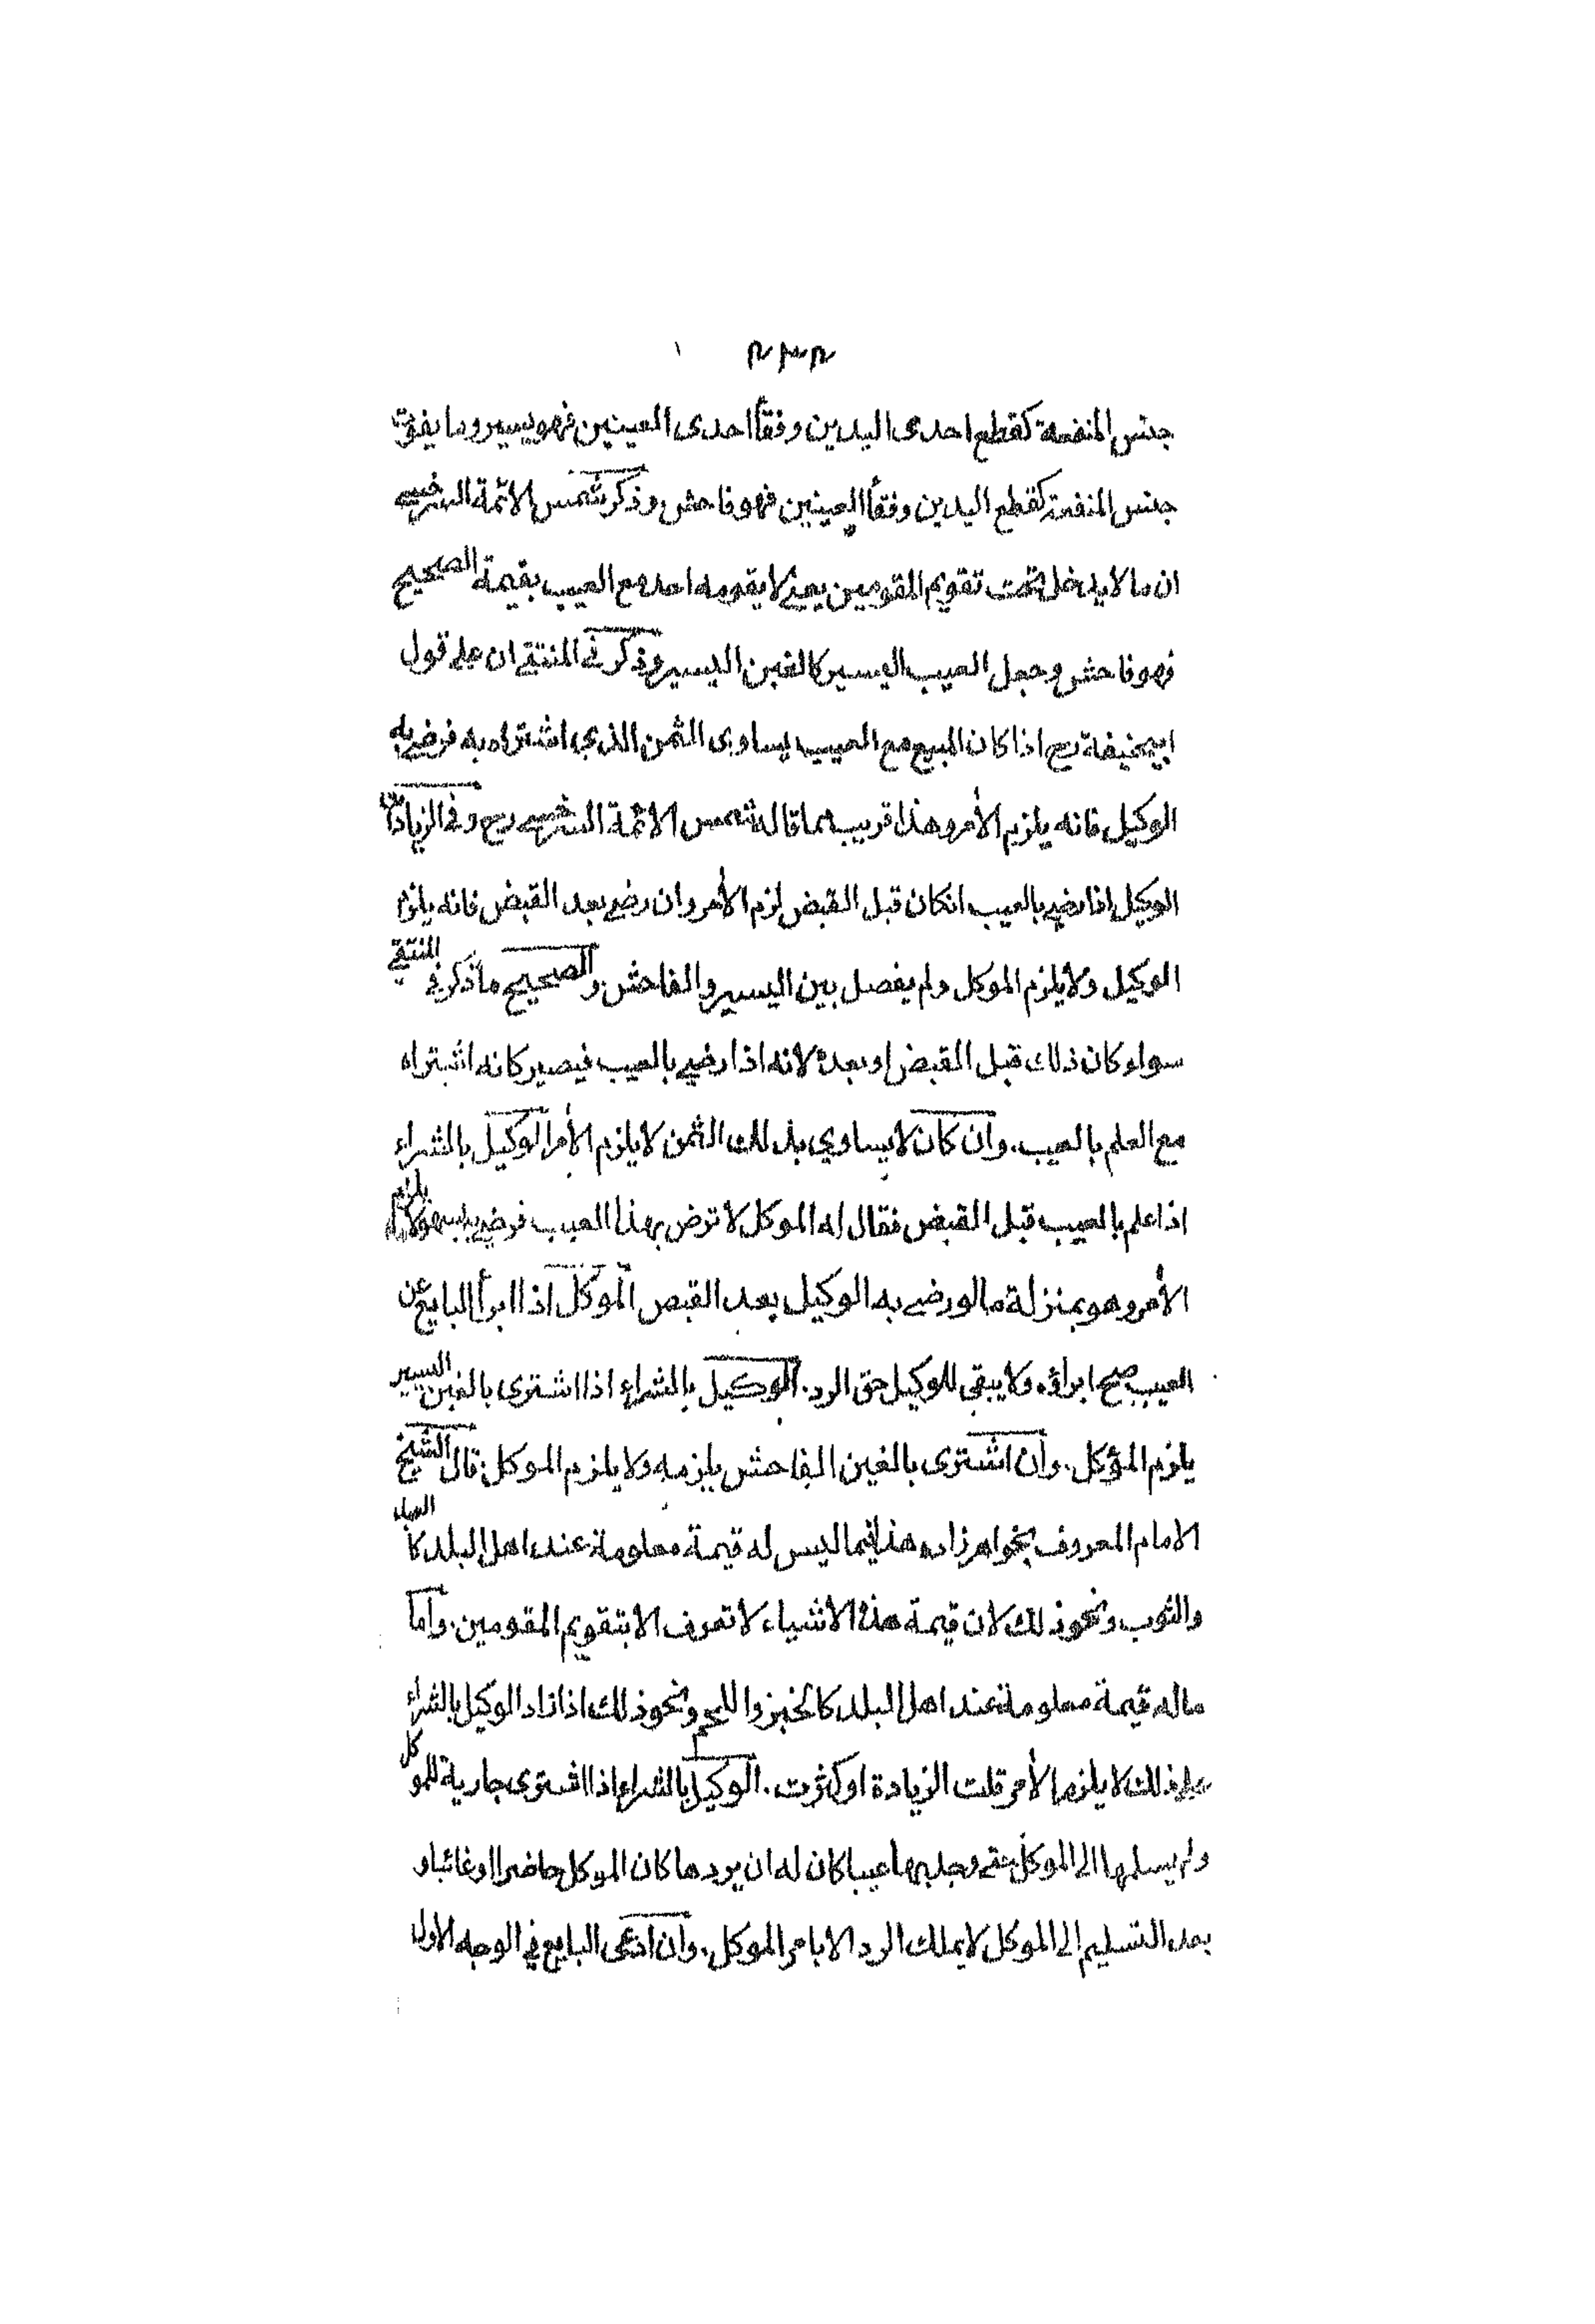 ٢٣٢
جنس المنفعة كقطع احدى اليدين وفقأ احدى العينين فهو يسير وما يفوّت
جنس المنفعة كقطع اليدين وفقأ العينين فهو فاحش وذكر شمس الائمة السرخسي
ان ما لا يدخل تحت تقويم المقومين يعني لا يقومه احد مع العيب بقيمة الصحيح
فهو فاحش وجعل العيب اليسير كالغبن اليسير وذكر في المنتقى ان على قول
ابيحنيفة رح اذا كان المبيع مع العيب يساوى الثمن الذي اشتراه به فرضي به
الوكيل فانه يلزم الأمر وهذا قريب مما قاله شمس الائمة السرخسي رح وفي الزيادات
الوكيل اذا رضي بالعيب انكان قبل القبض لزم الأمر وان رضي بعد القبض فانه يلزم
الوكيل ولا يلزم الموكل ولم يفصل بين اليسير والفاحش والصحيح ما ذكر في المنتقى
سواء كان ذلك قبل القبض او بعده لانه اذا رضي بالعيب فيصير كانه اشتراه
مع العلم بالعيب. وان كان لا يساوي بذلك الثمن لا يلزم الأمر الوكيل بالشراء
اذا علم بالعيب قبل القبض فقال له الموكل لا ترض بهذا العيب فرضي به فهو لا يلزم
الأمر وهو بمنزلة ما لو رضي به الوكيل بعد القبض الموكل اذا ابرأ البايع عن
العيب صح ابراؤه ولا يبقى للوكيل حق الرد. الوكيل بالشراء اذا اشترى بالغبن اليسير
يلزم المؤكل. وان اشترى بالغبن الفاحش يلزمه ولا يلزم الموكل. قال الشيخ
الامام المعروف بخواهرزاده هذا فيما ليس له قيمة معلومة عند اهل البلد كالعبد
والثوب ونحو ذلك لان قيمة هذه الاشياء لا تعرف الا بتقويم المقومين. واما
ماله قيمة معلومة عند اهل البلد كالخبز واللحم ونحو ذلك اذا زاد الوكيل بالشراء
على ذلك لا يلزم الأمر قلت الزيادة او كثرت. الوكيل بالشراء اذا اشترى جارية للموكل
ولم يسلمها الى الموكل حتى وجد بها عيبا كان له ان يردها كان الموكل حاضرا او غائبا و
بعد التسليم الى الموكل لا يملك الرد الا بامر الموكل. وان ادعى البايع في الوجه الاول